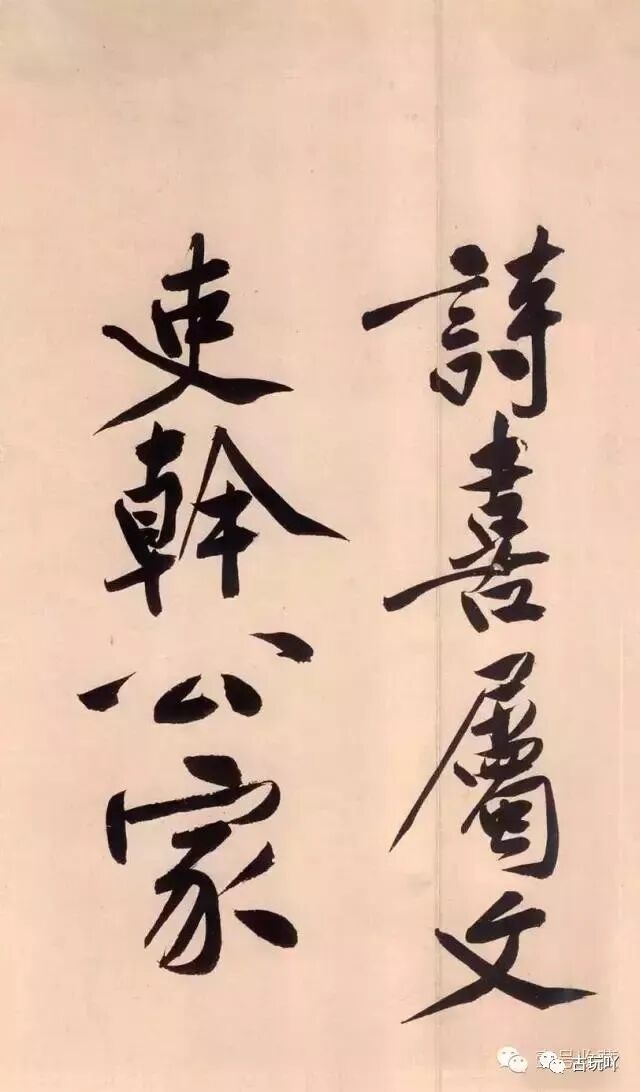 詩喜屬文
吏幹公家
古玩吖